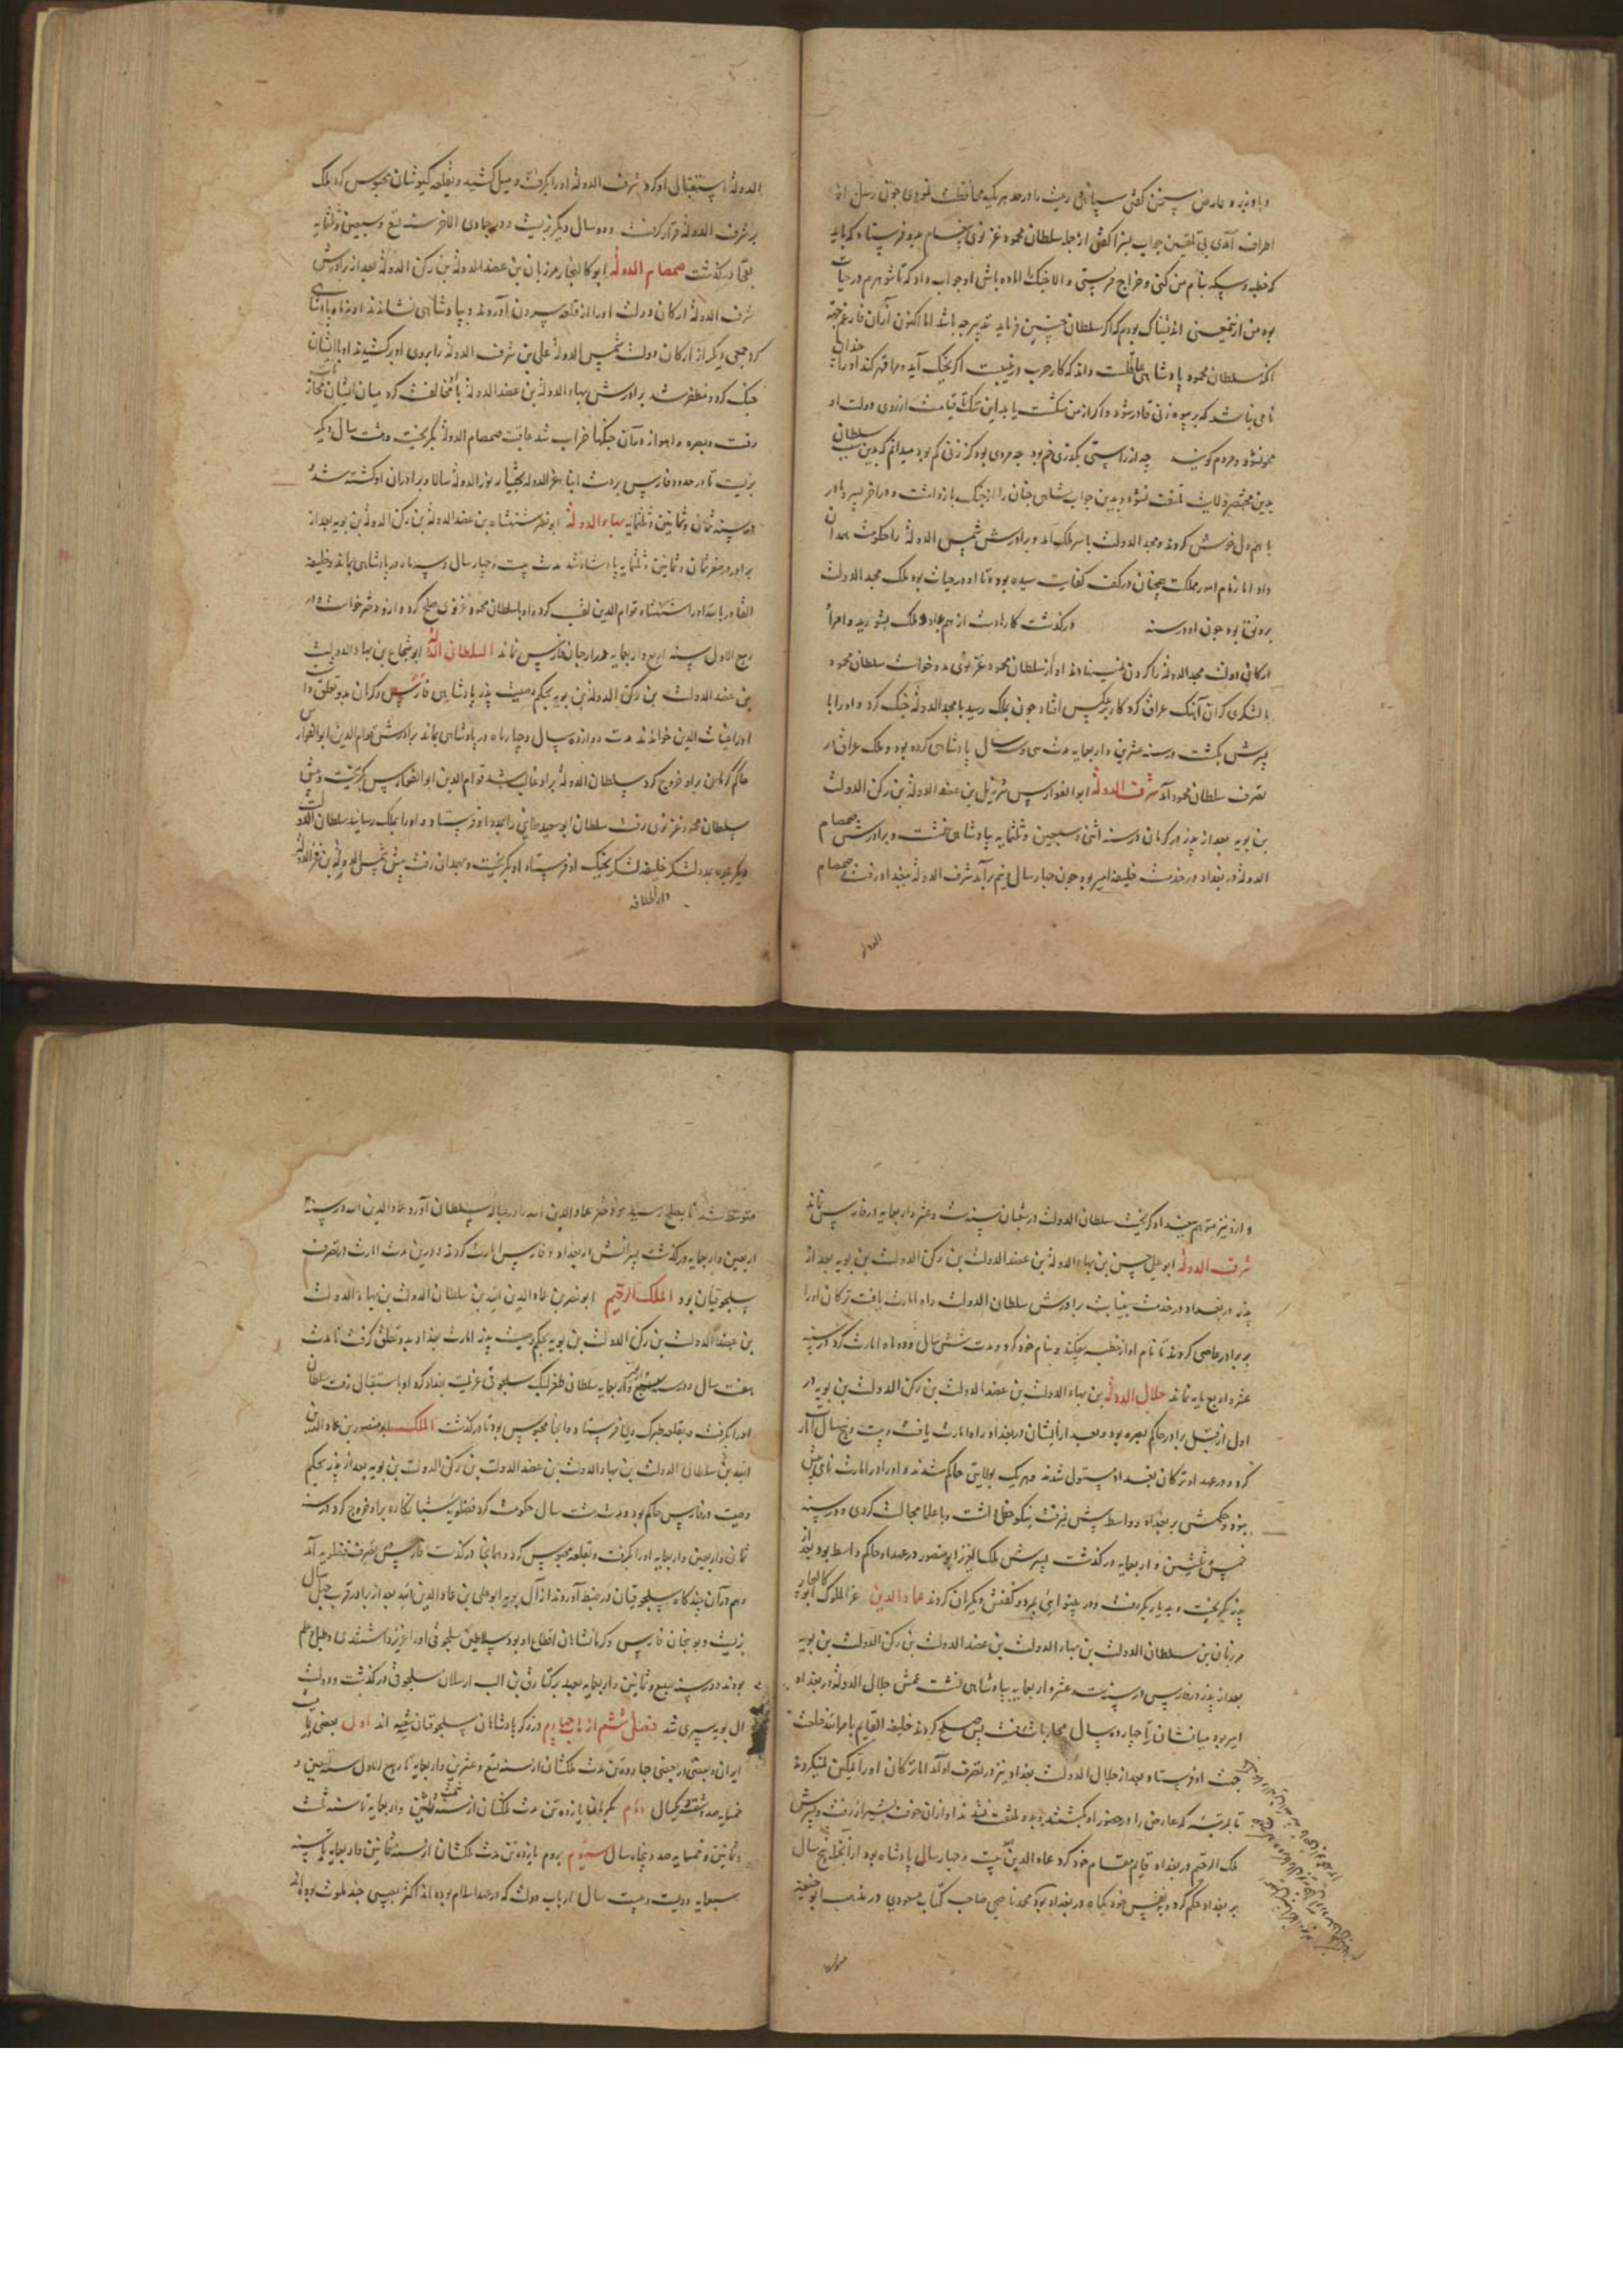 و با وزیر و عارض سخن گفتی سپاهی رعیت را در حد هر یک محافظت نمودی چون رسل از
اطراف آمدی بی تلقین جواب بسزا گفتی از جمله سلطان محمود غزنوی پیغام بدو فرستاد که باید
که خطبه و سکه بنام من کنی و خراج فرستی و الا جنک را آماده باشی او جواب داد که تا شوهرم در حیات
بود من ازین معنی اندیشناک بودم که اگر سلطان چنین فرماید تدبیر چه باشد اما اکنون از آن فارغم جهة
انکه سلطان محمود پادشاهی عاقلست داند که کار حرب در غیبت اگر بجنک آید و مرا قهر کند او را چندان
نامی نباشد که بر بیوه زنی قادر شود و اگر از من شکست یابد این ننک تا قیامت از روی دولت او
محو نشود و مردم گویند چه از راستی بگذری خم بود چه مردی بود کز زنی کم بود میدانم که بدین سبب سلطان
بدین محتصر ولایت ملتفت نشود و بدین جواب شاهی چنان را از جنک بازداشت و در آخر پسر و مادر
با هم دل خوش کردند و مجد الدولت با سر ملک آمد و برادرش شمس الدوله را حکومت همدان
داد اما زمام امور مملکت همچنان در کف کفایت سیده بود و تا او در حیات بود ملک مجد الدولت
برونق بود چون او در سنه درگذشت کار دولت از هم بیفتاد و ملک بشورید و امرا
ارکان دولت مجد الدوله را گردن نمینهادند او از سلطان محمود غزنوی مدد خواست سلطان محمود
با لشکری گران آهنک عراق کرد کار برعکس افتاد چون بملک رسید با مجد الدوله جنک کرد و او را با
پسرش بکشت در سنه عشرین و اربعمایه مدت سی و سال پادشاهی کرده بود و ملک عراق در
تصرف سلطان محمود آمد شرف الدوله ابو الفوارس شرزیل بن عضد الدوله بن رکن الدولت
بن بویه بعد از پدر در کرمان در سنه اثنی و سبعین و ثلثمایه پادشاهی نشست و برادرش صمصام
الدوله در بغداد در خدمت خلیفه امیر بود چون چهار سال و نیم برآمد شرف الدوله ببغداد رفت صمصام
الدوله
الدوله استقبال او کرد شرف الدوله او را بگرفت و میل کشید و بقلعه کیوشان محبوس کرد ملک
بر شرف الدوله قرار گرفت و دو سال دیگر بزیست و در جمادی الاخر سنه تسع و سبعین و ثلثمایه
بفجا درگذشت صمصام الدوله ابو کالیجار مرزبان بن عضد الدوله بن رکن الدوله بعد از برادرش
شرف الدوله ارکان دولت او را از قلعه بیرون آوردند و بپادشاهی نشاندند او نه ماه پادشاهی
کرد جمعی دیگر از ارکان دولت شمس الدوله علی بن شرف الدوله را بروی او برکشیدند او با ایشان
جنک کرد و مظفر شد برادرش بهاء الدوله بن عضد الدوله با او مخالفت کرد میان ایشان محاربات
رفت و بصره و اهواز در آن جنکها خراب شد عاقبت صمصام الدوله بگریخت و هشت سال دیگر
بزیست تا در حدود فارس بر دست ابناء عز الدوله بختیار نور الدوله سالار و برادران او کشته شد
در سنه ثمان و ثمانین و ثلثمایه بهاء الدوله ابو نصر شهنشاه بن عضد الدوله بن رکن الدوله بن بویه بعد از
برادر در صفر ثمان و ثمانین و ثلثمایه پادشاه شد مدت بیست و چهار سال و سه ماه در پادشاهی بماند و خلیفه
القادر بالله او را شهنشاه قوام الدین لقب کرد و او با سلطان محمود غزنوی صلح کرد و ازو دختر خواست و در
ربیع الاول سنه اربع و اربعمایه در ارجان فارس نماند السلطان الدوله ابو شجاع بن بهاء الدولت
بن عضد الدولت بن رکن الدوله بن بویه بحکم وصیت پدر پادشاهی فارس و کرمان بدو تعلق داشت
او را غیاث الدین خواندند مدت دوازده سال و چهار ماه در پادشاهی بماند برادرش قوام الدین ابو الفوارس
حاکم کرمان برو خروج کرد سلطان الدوله برو غالب شد قوام الدین ابو الفوارس بگریخت و پیش
سلطان محمود غزنوی رفت سلطان ابو سعید طائی را بمدد او فرستاد و او را بملک رسانید سلطان الدولت
دیگر بمدد لشکر خلیفه لشکر بجنک او فرستاد او بگریخت و بهمدان رفت پیش شمس الدوله بن فخر الدوله
دار الخلافه
و ازو نیز متوهم ببغداد گریخت سلطان الدولت در شعبان سنه ست و عشر و اربعمایه در فارس نماند
شرف الدوله ابو علی حسن بن بهاء الدوله بن عضد الدولت بن رکن الدولت بن بویه بعد از
پدر در بغداد در خدمت بنیابت برادرش سلطان الدولت راه امارت یافت ترکان او را
بر برادر عاصی کردند تا نام او از خطبه بیفکند و بنام خود کرد و مدت شش سال و دو ماه امارت کرد در سنه
عشر و اربعمایه نماند جلال الدوله بن بهاء الدولت بن عضد الدولت بن رکن الدولت بن بویه در
اول از قبل برادر حاکم بصره بود و بعد از ایشان در بغداد راه امارت یافت و بیست و پنج سال امارت
کرد و در عهد او ترکان بغداد مستولی شدند و هر یک بولایتی حاکم شدند و او را از امارت نامی بیش
نبود و حکمش بر بغداد و واسط بیش نمیرفت نیکو خط داشت و با علما مجالست کردی و در سنه
خمس و ثلثین و اربعمایه درگذشت پسرش ملک العزیز ابو منصور در عهد او حاکم واسط بود بعد از
پدر بگریخت و بدیار بکر رفت و در آنجا بمرد عماد الدین عز الملوک ابو کالنجار
مرزبان بن سلطان الدولت بن بهاء الدولت بن عضد الدولت بن رکن الدولت بن بویه
بعد از پدر در فارس در سنه ست عشر و اربعمایه بپادشاهی نشست عمش جلال الدوله در بغداد
امیر بود میانشان تا چهارده سال محاربات رفت پس صلح کردند خلیفه القایم بامر الله خلعت
جهت او فرستاد و بعد از جلال الدولت بغداد نیز در تصرف او آمد اما ترکان او را تمکین نمیکردند
تا بمرتبه که عارض را در حضور او بکشتند و بدو ملتفت نشدند او از آن خوف بشیراز رفت و پسرش
ملک الرحیم در بغداد قایم مقام خود کرد عماد الدین بیست و چهار سال پادشاه بود از آنجمله پنج سال
بر بغداد حکم کرد و بنفس خود یکماه در بغداد بود محمد ناصحی صاحب کتاب مسعودی در مذهب ابو حنیفه
متوسط شد تا بصلح رسید
اربعین و اربعمایه درگذشت پسرانش در بغداد و فارس امارت کردند و درین مدت امارت در تصرف
سلجوقیان بود الملک الرحیم ابو نصر بن عماد الدین لله بن سلطان الدولت بن بهاء الدولت
بن عضد الدولت بن رکن الدولت بن بویه بحکم وصیت پدر امارت بغداد بدو تعلق گرفت تا مدت
هفت سال و در سنه سبع و اربعین و اربعمایه سلطان طغرلبک سلجوقی عزیمت بغداد کرد او باستقبال رفت سلطان
او را بگرفت و بقلعه طبرک ری فرستاد و آنجا محبوس بود تا درگذشت الملک ابو منصور بن عماد الدین
لله بن سلطان الدولت بن بهاء الدولت بن عضد الدولت بن رکن الدولت بن بویه بعد از پدر بحکم
وصیت در فارس حاکم بود و مدت هشت سال حکومت کرد فضلویه شبانکاره برو خروج کرد در سنه
ثمان و اربعین و اربعمایه او را بگرفت و بقلعه محبوس کرد و همانجا درگذشت فارس بتصرف فضلویه آمد
و هم در آن چندگاه سلجوقیان در ضبط آوردند از آل بویه ابو علی بن عماد الدین لله بعد از برادر قرب چهل سال
بزیست و نوبنجان فارس و کرمانشاهان اقطاع او بود سلاطین سلجوقی او را عزیز داشتندی و طبل و علم
بودند و در سنه سبع و ثمانین و اربعمایه بعهد برکیارق بن الب ارسلان سلجوقی درگذشت و دولت
ال بویه سپری شد فصل ششم از باب چهارم در ذکر پادشاهان سلجوقیان شعبه اند اول بعضی بر
ایران و بعضی در بعضی چهارده تن مدت ملکشان از سنه تسع و عشرین و اربعمایه تا ربیع الاول سنه تسعین و
خمسمایه صد و شصت و یکسال دوم بکرمان یازده تن مدت ملکشان از سنه ثلث و ثلثین و اربعمایه تا سنه ثلث
و ثمانین و خمسمایه صد و پنجاه سال سیوم بروم یازده تن مدت ملکشان از سنه ثمانین و اربعمایه تا سنه
سبعمایه دویست و بیست سال ارباب دولت که در عهد اسلام بوده اند اکثر بعیبی چند ملوث بوده اند